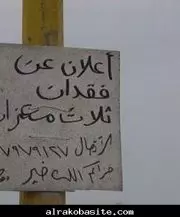 أعلان عن
فقدان
ثلاث معزات
الاتصال ٠٧٩٧٩١٢٧
جزاكم الله خير
alrakobasite.com